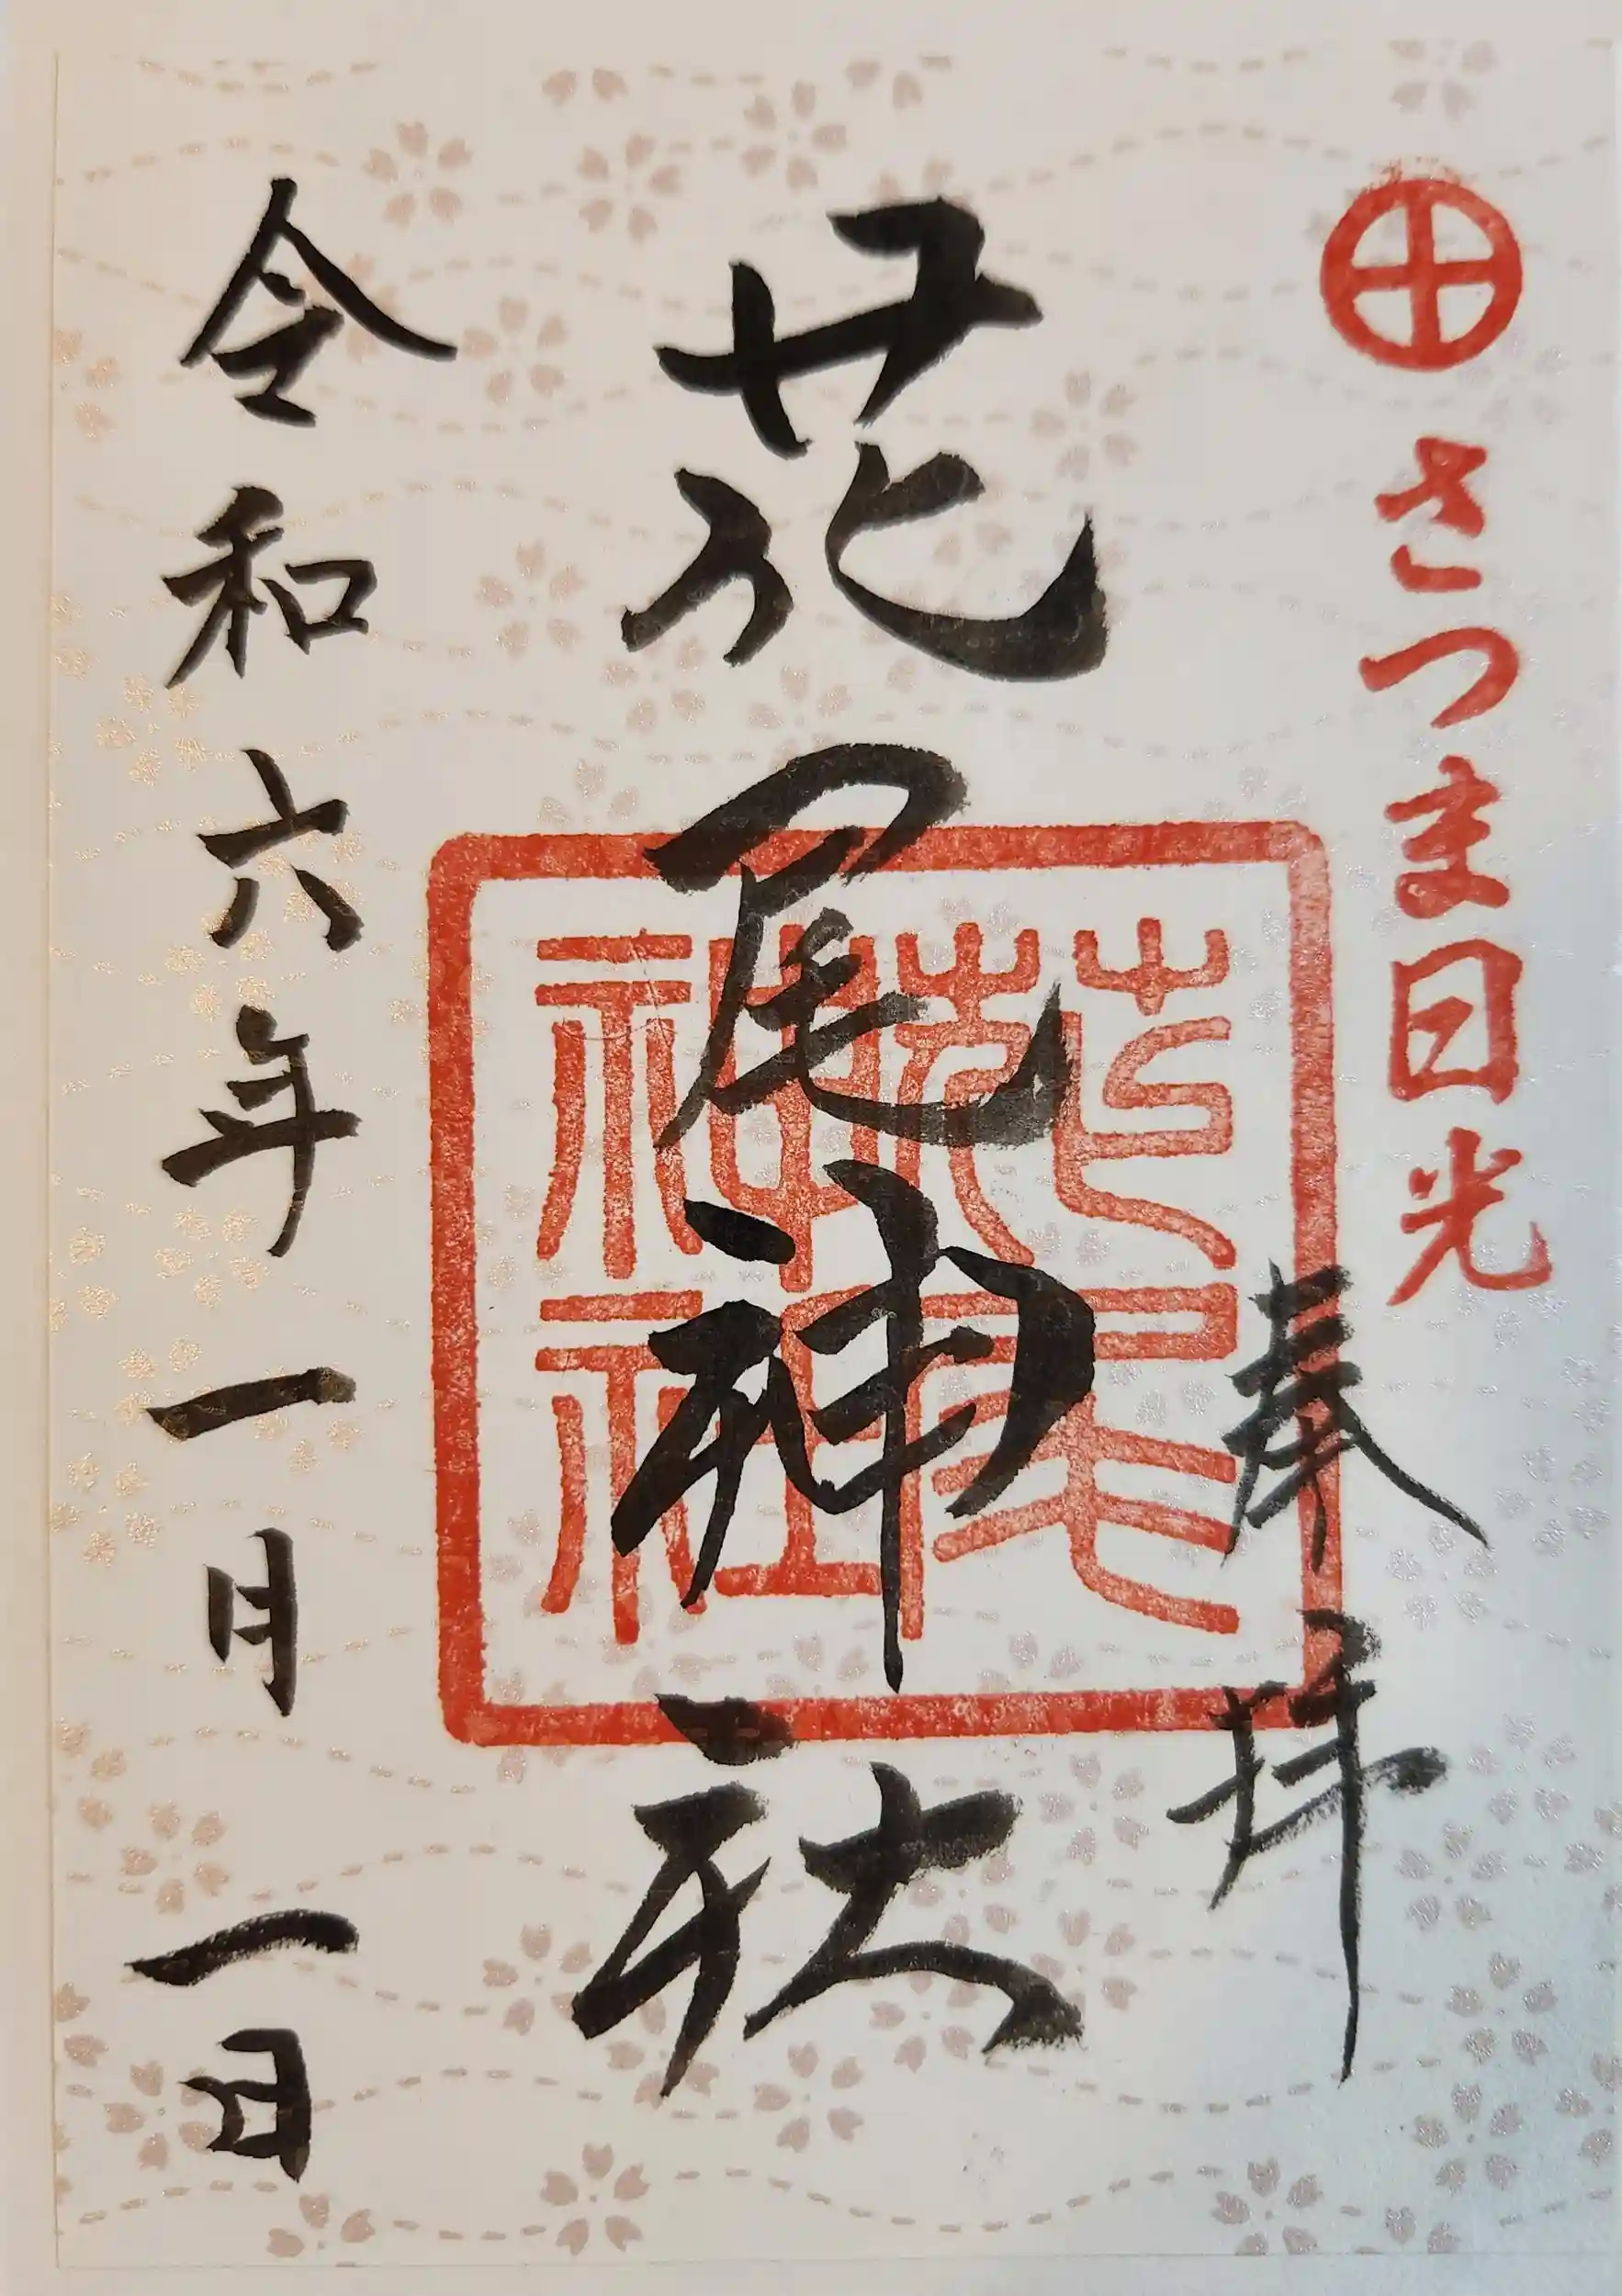 さつま日光
奉拝
花尾神社
花尾神社
令和六年一月一日